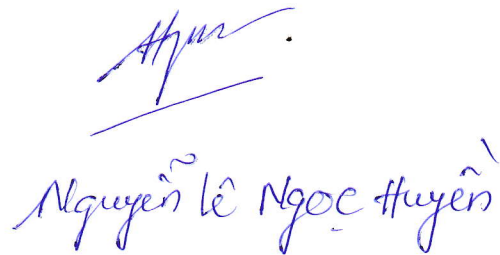 Nguyễn lê Ngọc Huyền